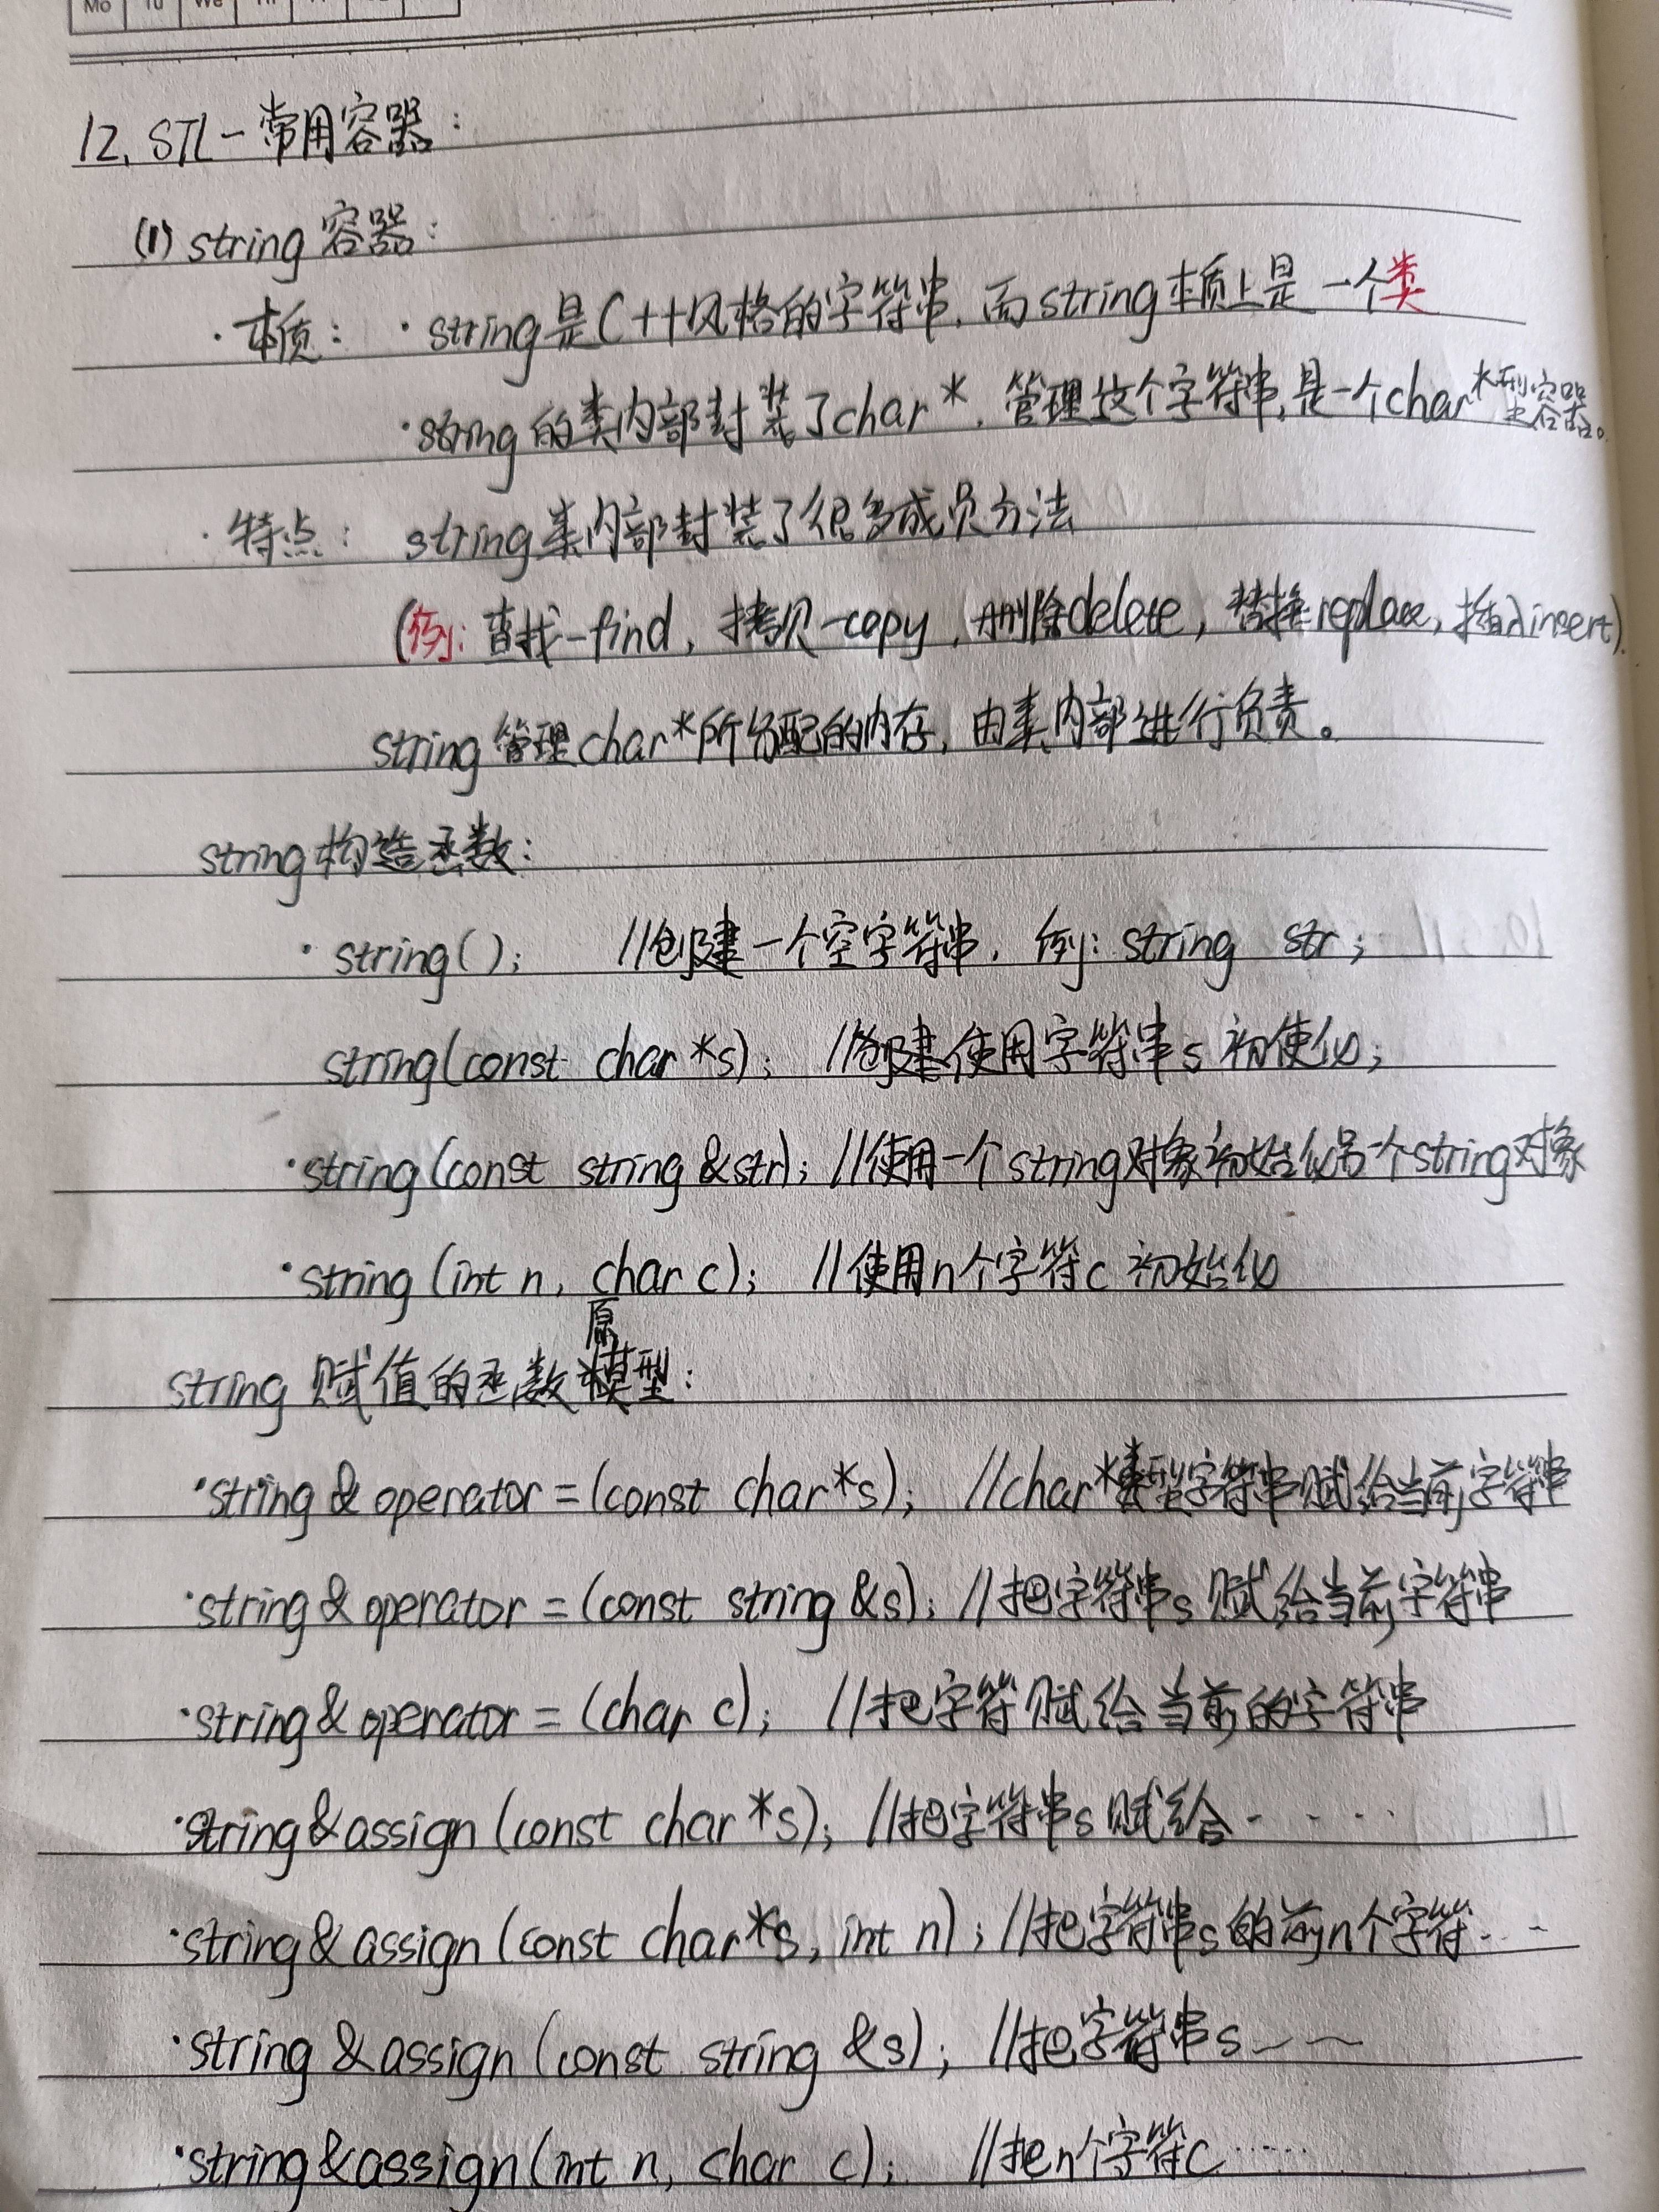 Mo Tu We
12. STL-常用容器:
(1) string 容器:
·本质: ·string是C++风格的字符串,而string本质上是一个类
·string的类内部封装了char*,管理这个字符串,是一个char*型容器。
·特点: string类内部封装了很多成员方法
(例:查找-find,拷贝-copy,删除delete,替换replace,插入insert).
string管理char*所分配的内存,由类内部进行负责。
string构造函数:
·string(); //创建一个空字符串. 例: string str;
string(const char *s); //创建使用字符串s初使化;
·string(const string &str); //使用一个string对象初始化另个string对象
·string(int n, char c); //使用n个字符c初始化
原
string 赋值的函数模型:
·string & operator = (const char*s); //char*类型字符串赋给当前字符串
·string & operator = (const string &s); //把字符串s 赋给当前字符串
·string & operator = (char c); //把字符赋给当前的字符串
·string & assign (const char *s); //把字符串s 赋给·····
·string & assign (const char*s, int n); //把字符串s的前n个字符····
·string & assign (const string &s); //把字符串s~~
·string & assign (int n, char c); //把n个字符c······